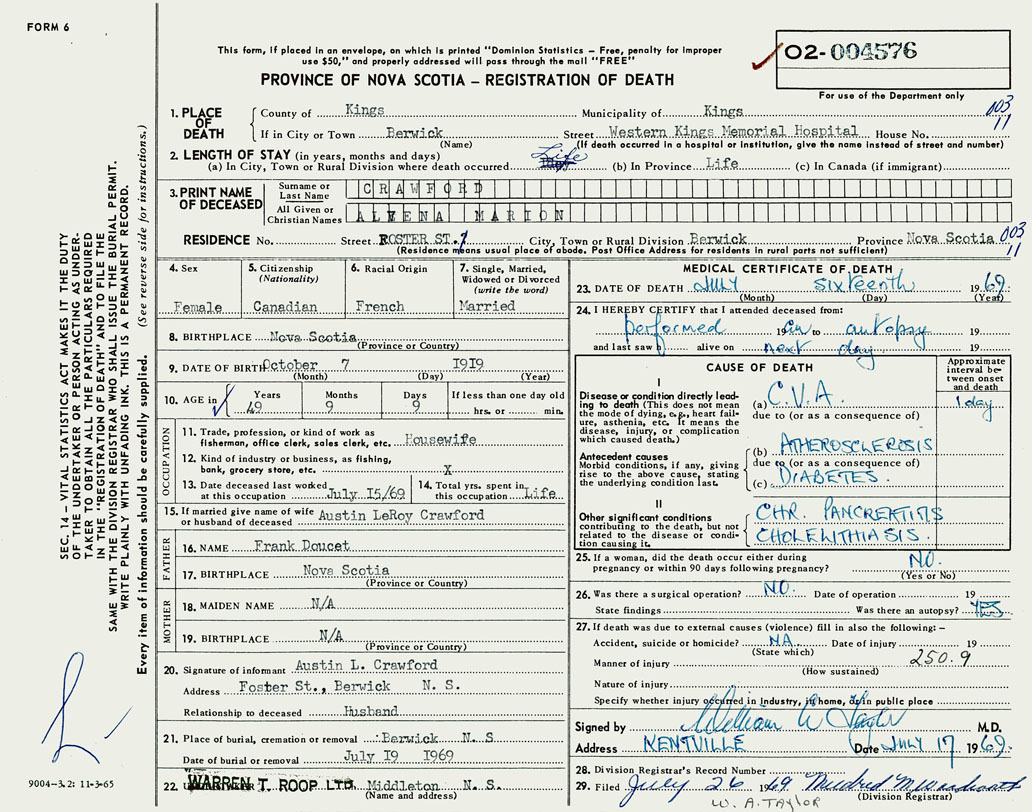 FORM 6
This form, if placed in an envelope, on which is printed "Dominion Statistics – Free, penalty for improper
use $50," and properly addressed will pass through the mail "FREE"
PROVINCE OF NOVA SCOTIA – REGISTRATION OF DEATH
02-004576
For use of the Department only
SEC. 14 – VITAL STATISTICS ACT MAKES IT THE DUTY
OF THE UNDERTAKER OR PERSON ACTING AS UNDER-
TAKER TO OBTAIN ALL THE PARTICULARS REQUIRED
IN THE "REGISTRATION OF DEATH" AND TO FILE THE
SAME WITH THE DIVISION REGISTRAR WHO SHALL ISSUE THE BURIAL PERMIT.
WRITE PLAINLY WITH UNFADING INK. THIS IS A PERMANENT RECORD.
Every item of information should be carefully supplied. (See reverse side for instructions.)
1. PLACE OF DEATH
County of Kings Municipality of Kings 003
11
If in City or Town Berwick Street Western Kings Memorial Hospital House No.
(Name) (If death occurred in a hospital or institution, give the name instead of street and number)
2. LENGTH OF STAY (in years, months and days)
(a) In City, Town or Rural Division where death occurred Life (b) In Province Life (c) In Canada (if immigrant)
3. PRINT NAME OF DECEASED
Surname or Last Name CRAWFORD
All Given or Christian Names ALVENA MARION
RESIDENCE No. Street FOSTER ST. City, Town or Rural Division Berwick Province Nova Scotia 003
11
(Residence means usual place of abode. Post Office Address for residents in rural parts not sufficient)
4. Sex
Female
5. Citizenship
(Nationality)
Canadian
6. Racial Origin
French
7. Single, Married,
Widowed or Divorced
(write the word)
Married
8. BIRTHPLACE Nova Scotia
(Province or Country)
9. DATE OF BIRTH October 7 1919
(Month) (Day) (Year)
10. AGE in Years Months Days If less than one day old
49 9 9 hrs. or min.
OCCUPATION
11. Trade, profession, or kind of work as
fisherman, office clerk, sales clerk, etc. Housewife
12. Kind of industry or business, as fishing,
bank, grocery store, etc. X
13. Date deceased last worked
at this occupation July 15/69
14. Total yrs. spent in
this occupation Life
15. If married give name of wife
or husband of deceased Austin LeRoy Crawford
FATHER
16. NAME Frank Doucet
17. BIRTHPLACE Nova Scotia
(Province or Country)
MOTHER
18. MAIDEN NAME N/A
19. BIRTHPLACE N/A
(Province or Country)
20. Signature of informant Austin L. Crawford
Address Foster St., Berwick N. S.
Relationship to deceased Husband
21. Place of burial, cremation or removal Berwick N. S
Date of burial or removal July 19 1969
22. WARREN T. ROOP LTD. Middleton N. S.
(Name and address)
9004-3.2: 11-3-65
MEDICAL CERTIFICATE OF DEATH
23. DATE OF DEATH JULY sixteenth 1969
(Month) (Day) (Year)
24. I HEREBY CERTIFY that I attended deceased from:
performed 19 an to autopsy 19
and last saw h alive on next day 19
CAUSE OF DEATH
Approximate
interval be-
tween onset
and death
I
Disease or condition directly lead-
ing to death (This does not mean
the mode of dying, e.g., heart fail-
ure, asthenia, etc. It means the
disease, injury, or complication
which caused death.)
(a) C.V.A. 1 day
due to (or as a consequence of)
Antecedent causes
Morbid conditions, if any, giving
rise to the above cause, stating
the underlying condition last.
(b) ATHEROSCLEROSIS
due to (or as a consequence of)
(c) DIABETES.
II
Other significant conditions
contributing to the death, but not
related to the disease or condi-
tion causing it.
CHR. PANCREATITIS
CHOLELITHIASIS.
25. If a woman, did the death occur either during
pregnancy or within 90 days following pregnancy? NO.
(Yes or No)
26. Was there a surgical operation? NO. Date of operation 19
State findings Was there an autopsy? YES
27. If death was due to external causes (violence) fill in also the following: –
Accident, suicide or homicide? NA Date of injury 19
(State which)
Manner of injury 250.9
(How sustained)
Nature of injury
Specify whether injury occurred in Industry, in home, or in public place
Signed by William W Taylor M.D.
Address KENTVILLE Date JULY 17 1969.
28. Division Registrar's Record Number
29. Filed July 26 1969 Mildred M. Woodworth
(Division Registrar)
W. A. TAYLOR